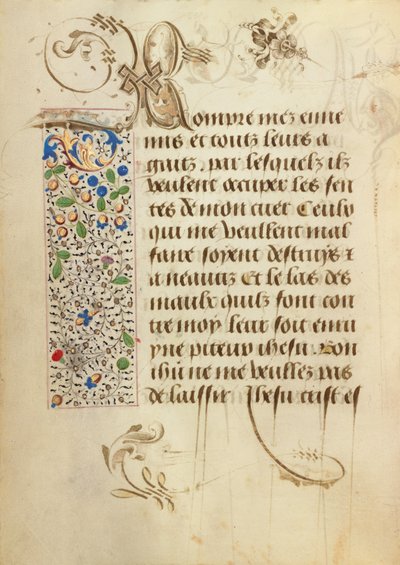 Rompre mez enne
mis et toutz leurs a
gaitz. par lesquelz ilz
veulent occuper les sen
tes de mon cuer Ceulx
qui me veullent mal
faire soyent destruys 
a neantz Et le las des
maulx quilz font con
tre moy leur soit en
yne piteux ihesu. Bon
ihu ne me veullez pas
de laissir Ihesu crist es